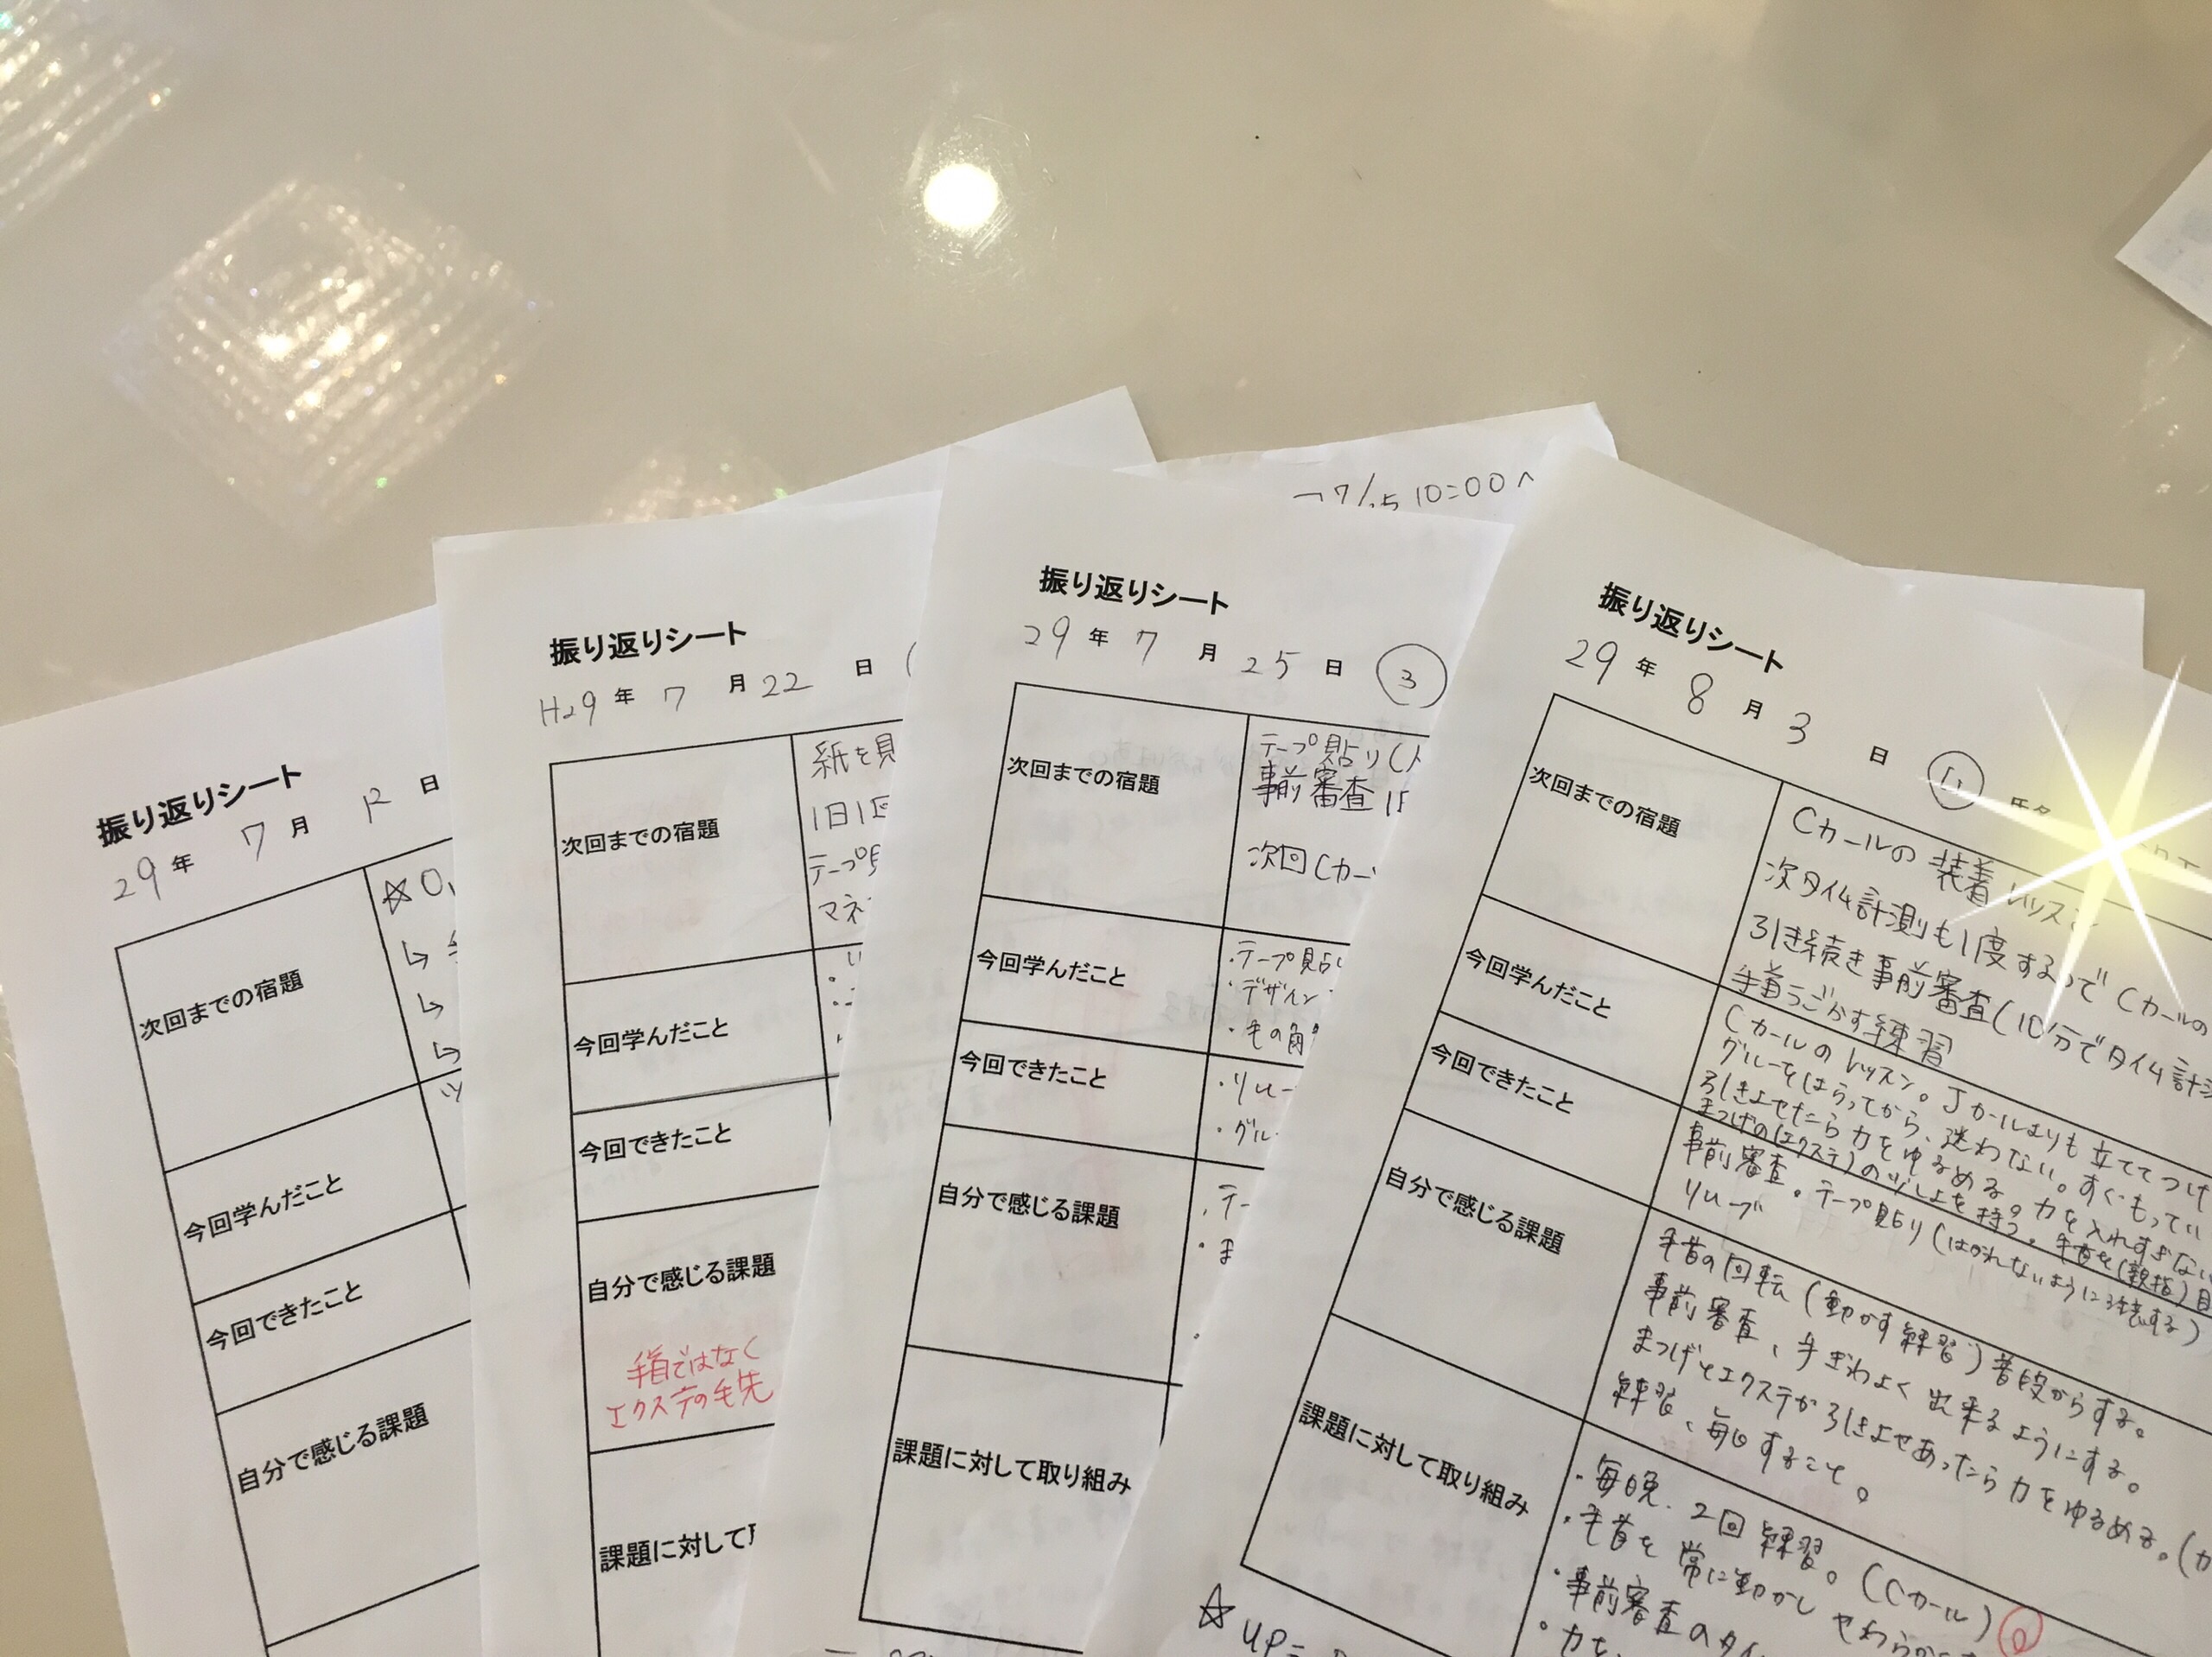 振り返りシート
29年 7月 12日
次回までの宿題
今回学んだこと
今回できたこと
自分で感じる課題
振り返りシート
H29年 7月22日
次回までの宿題
紙を見
1日1回
テープ貼
マネ
今回学んだこと
今回できたこと
自分で感じる課題
手首ではなく
エクステの毛先
課題に対して取
7/25 10:00〜
振り返りシート
29年 7月25日 ③
次回までの宿題
テープ貼り(
事前審査 1
次回Cカー
今回学んだこと
・テープ貼り
・デザイン
・毛の角
今回できたこと
・リムー
・グルー
自分で感じる課題
・テー
・ま
課題に対して取り組み
振り返りシート
29年 8月3日 ④ 氏名
次回までの宿題
Cカールの装着レッスン
次タイム計測も1度するので Cカールの
引き続き事前審査(10分でタイム計測
手首うごかす練習
今回学んだこと
Cカールのレッスン。Jカールよりも立ててつけ
グルーをはらってから、迷わない。すぐもってい
引きよせたら力をゆるめる。力を入れすぎない
まつげの(エクステ)の少し上を持つ。手首を(親指)
今回できたこと
事前審査。テープ貼り(はがれないように注意する)
リムーブ
自分で感じる課題
手首の回転(動かす練習)普段からする。
事前審査、手ぎわよく出来るようにする。
まつげとエクステが引きよせあったら力をゆるめる。(力
練習、毎日すること。
課題に対して取り組み
・毎晩、2回練習。(Cカール)
・手首を常に動かし やわらか
・事前審査のタイ
・力を
☆ UP=